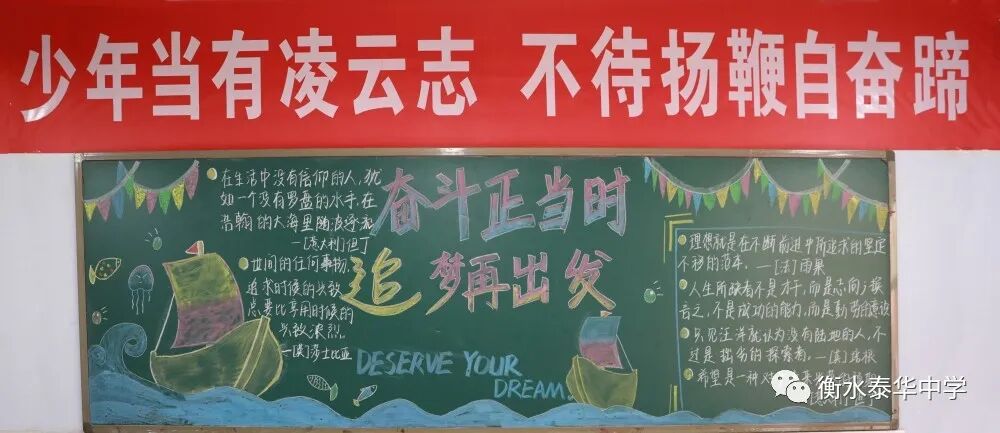 少年当有凌云志 不待扬鞭自奋蹄
在生活中没有信仰的人,犹
如一个没有罗盘的水手,在
浩瀚的大海里随波逐流
—[意大利]但丁
世间的任何事物,
追求时候的兴致
总要比享用时候的
兴致浓烈.
—[英]莎士比亚
奋斗正当时
追梦再出发
DESERVE YOUR
DREAM
理想就是在不断前进中所追求的坚定
不移的范本. —[法]雨果
人生所缺者不是才干,而是志向;换
言之,不是成功的能力,而是勤劳的意志
只见汪洋就认为没有陆地的人,不
过是拙劣的探索者. —[英]培根
希望是一种对
衡水泰华中学